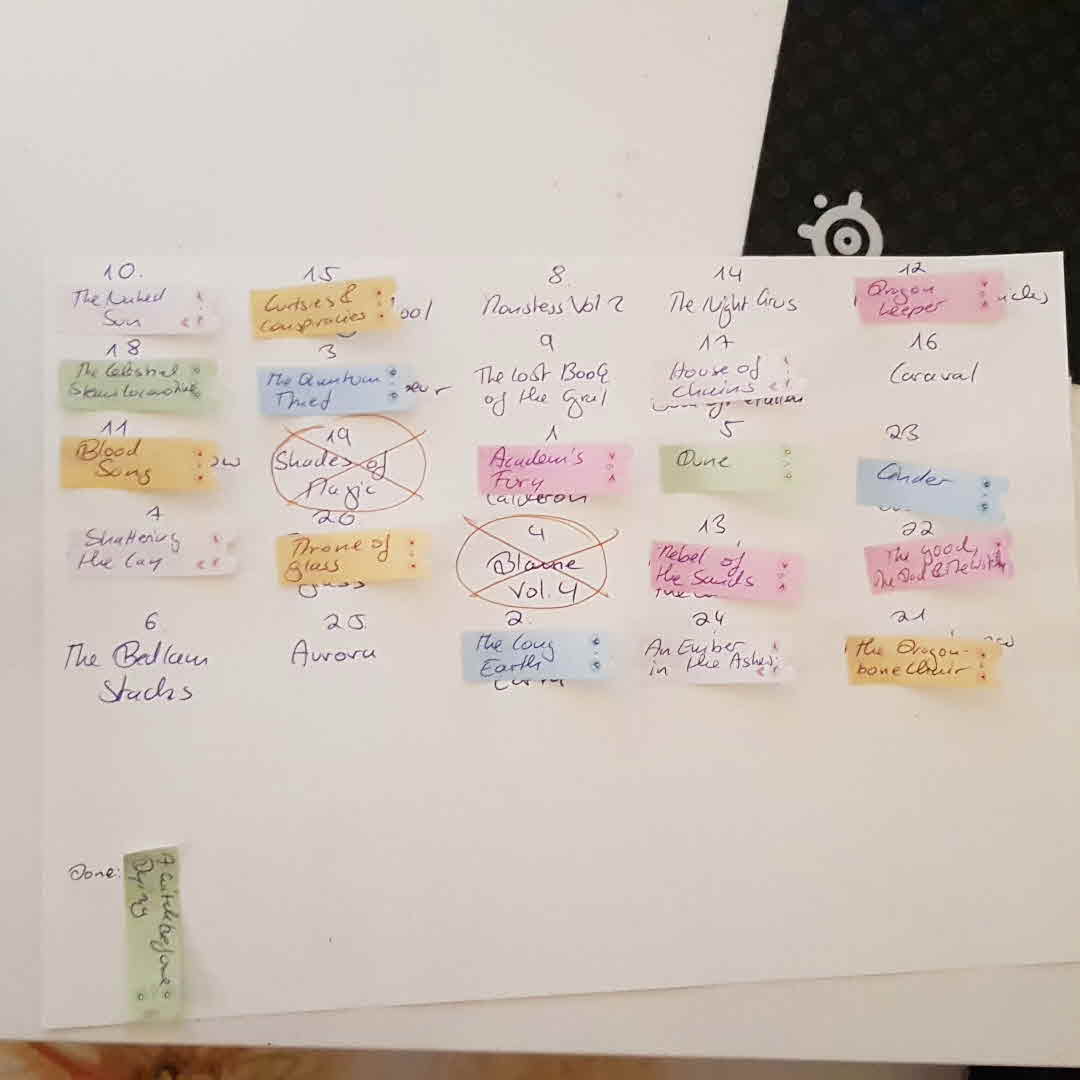 10. 15 8. 14 12
The Naked Sun
Curtsies & conspiracies
ool
Monstess Vol 2
The Night Circus
Dragon keeper
icles
18 3 9 17 16
The Celestial Steam Locomotive
The Quantum Thief
The Lost Book of the Gral
House of Chains
Caraval
11 19 1 5 23
Blood Song
Shades of Magic
Academ's Fury
Calderon
Dune
Cinder
7 20 4 13 22
Shattering the Ley
Throne of glass
glass
Blame Vol. 4
Rebel of the Sands
The good, The Bad & The Witch
6 25. 2. 24 21
The Bedlam Stacks
Aurora
The Long Earth
Earth
An Ember in the Ashes
the Dragon-bone Chair
Done:
A witch before Dying